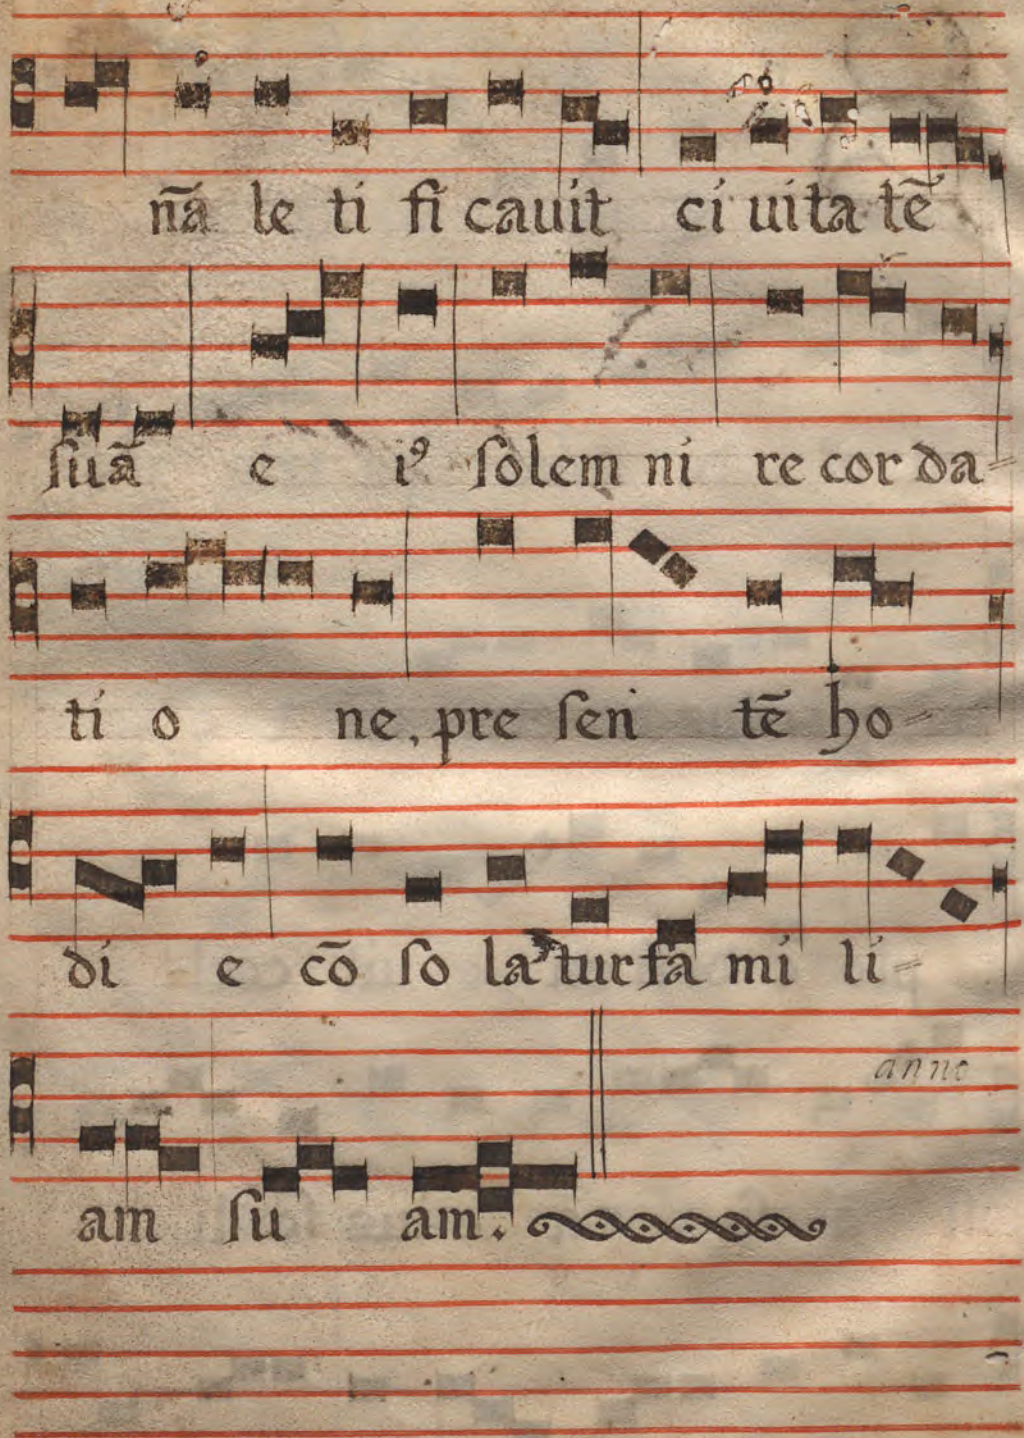 na᷃ le ti fi cauit ci uita te᷃
ſua᷃ e iꝰ ſolem ni re cor da=
ti o ne, pre ſen te᷃ ho=
di e co᷃ ſo la tur fa mi li=
anno
am ſu am.